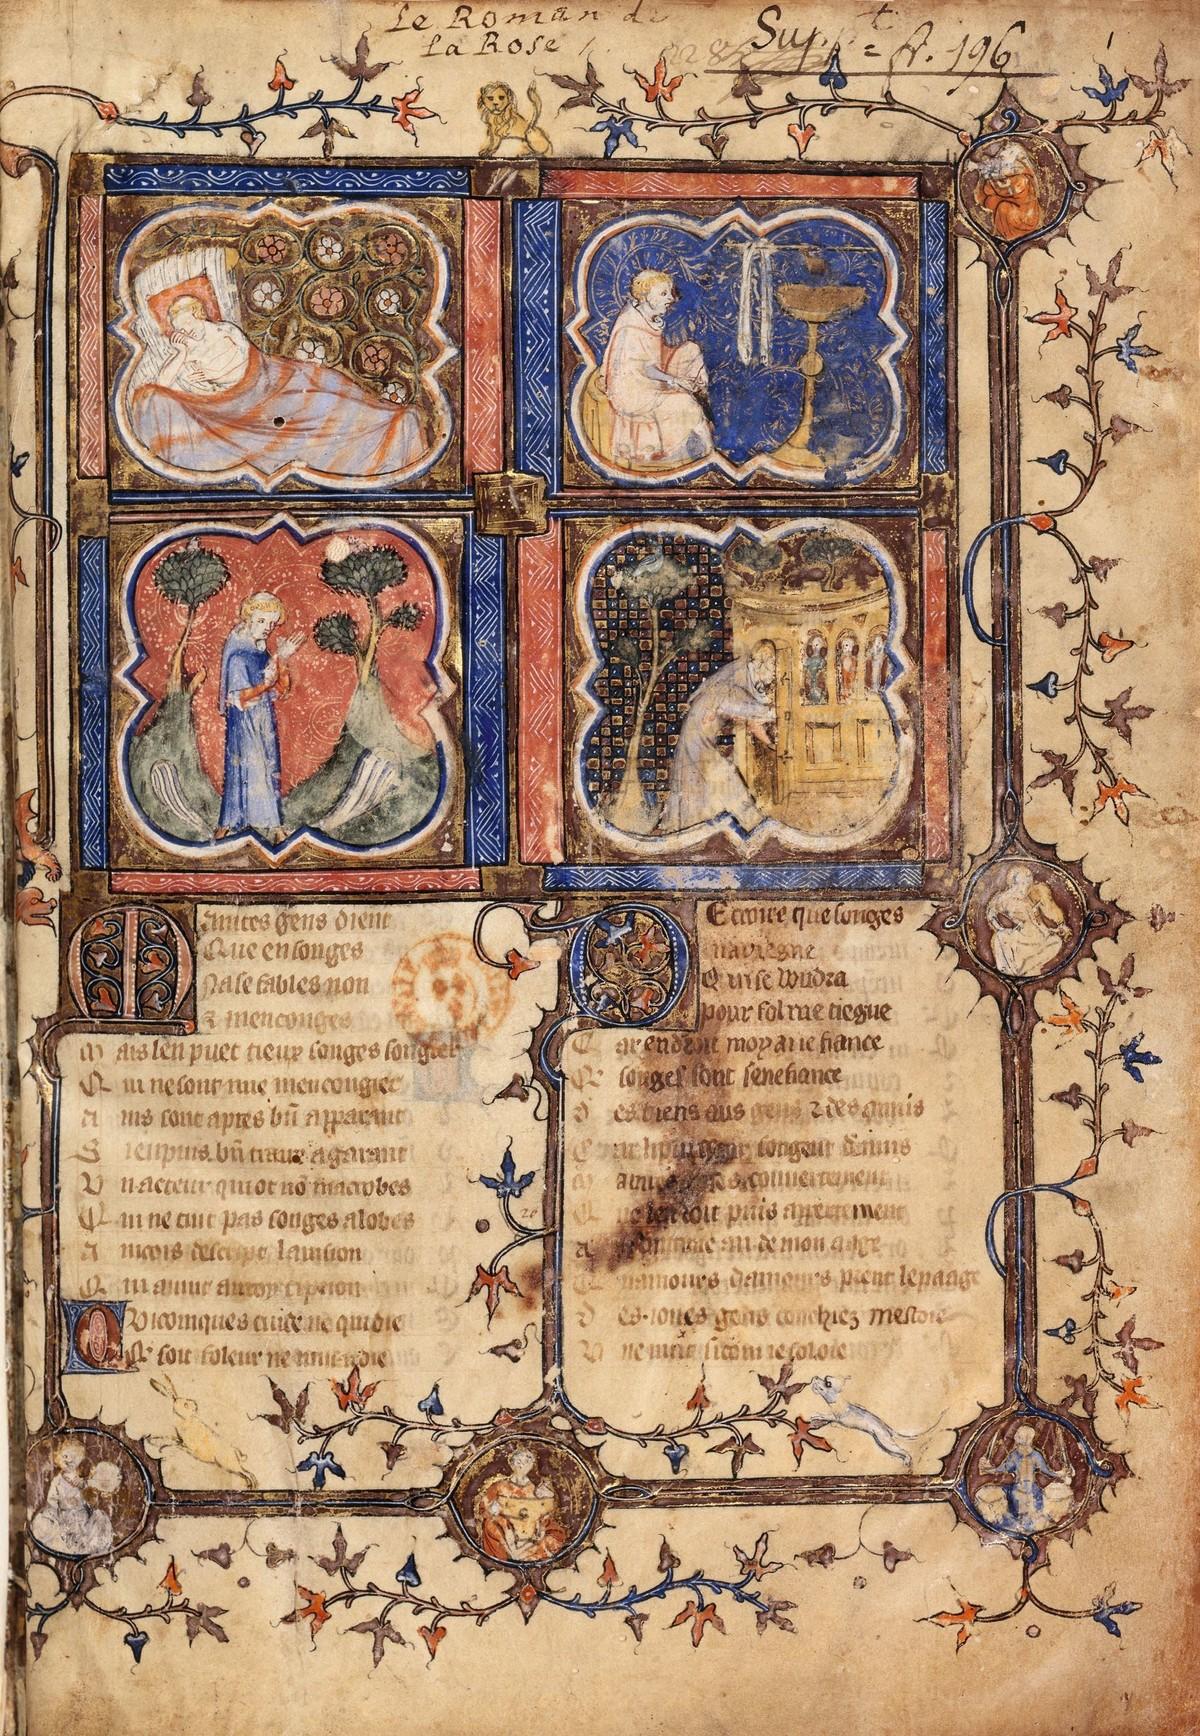 Le Roman de
la Rose
Supp.t fr. 196
Maintes gens dient
Que en songes
Na se fables non
& menconges
Mais len puet tieux songes songier
Qui ne sont mie mencongier
Ains sont apres bn apparant
Si en puis bn traire a garant
Un acteur qui ot nõ macrobes
Qui ne tint pas songes a lobes
Aincois descript lavision
Qui avint au roy cipion
Quiconques cuide ne qui die
Que soit foleur ne musardie
De croire que songes
naviegne
Qui se voudra
pour fol me tiegne
Car endroit moy ai ie fiance
Que songes sont senefiance
Des biens aus gens & des anuis
songent de nuis
couvertement
puis apertement
an de mon aage
amours prent le paage
Des ioues gens couchiez mestoie
Une nuit si com ie soloie
20